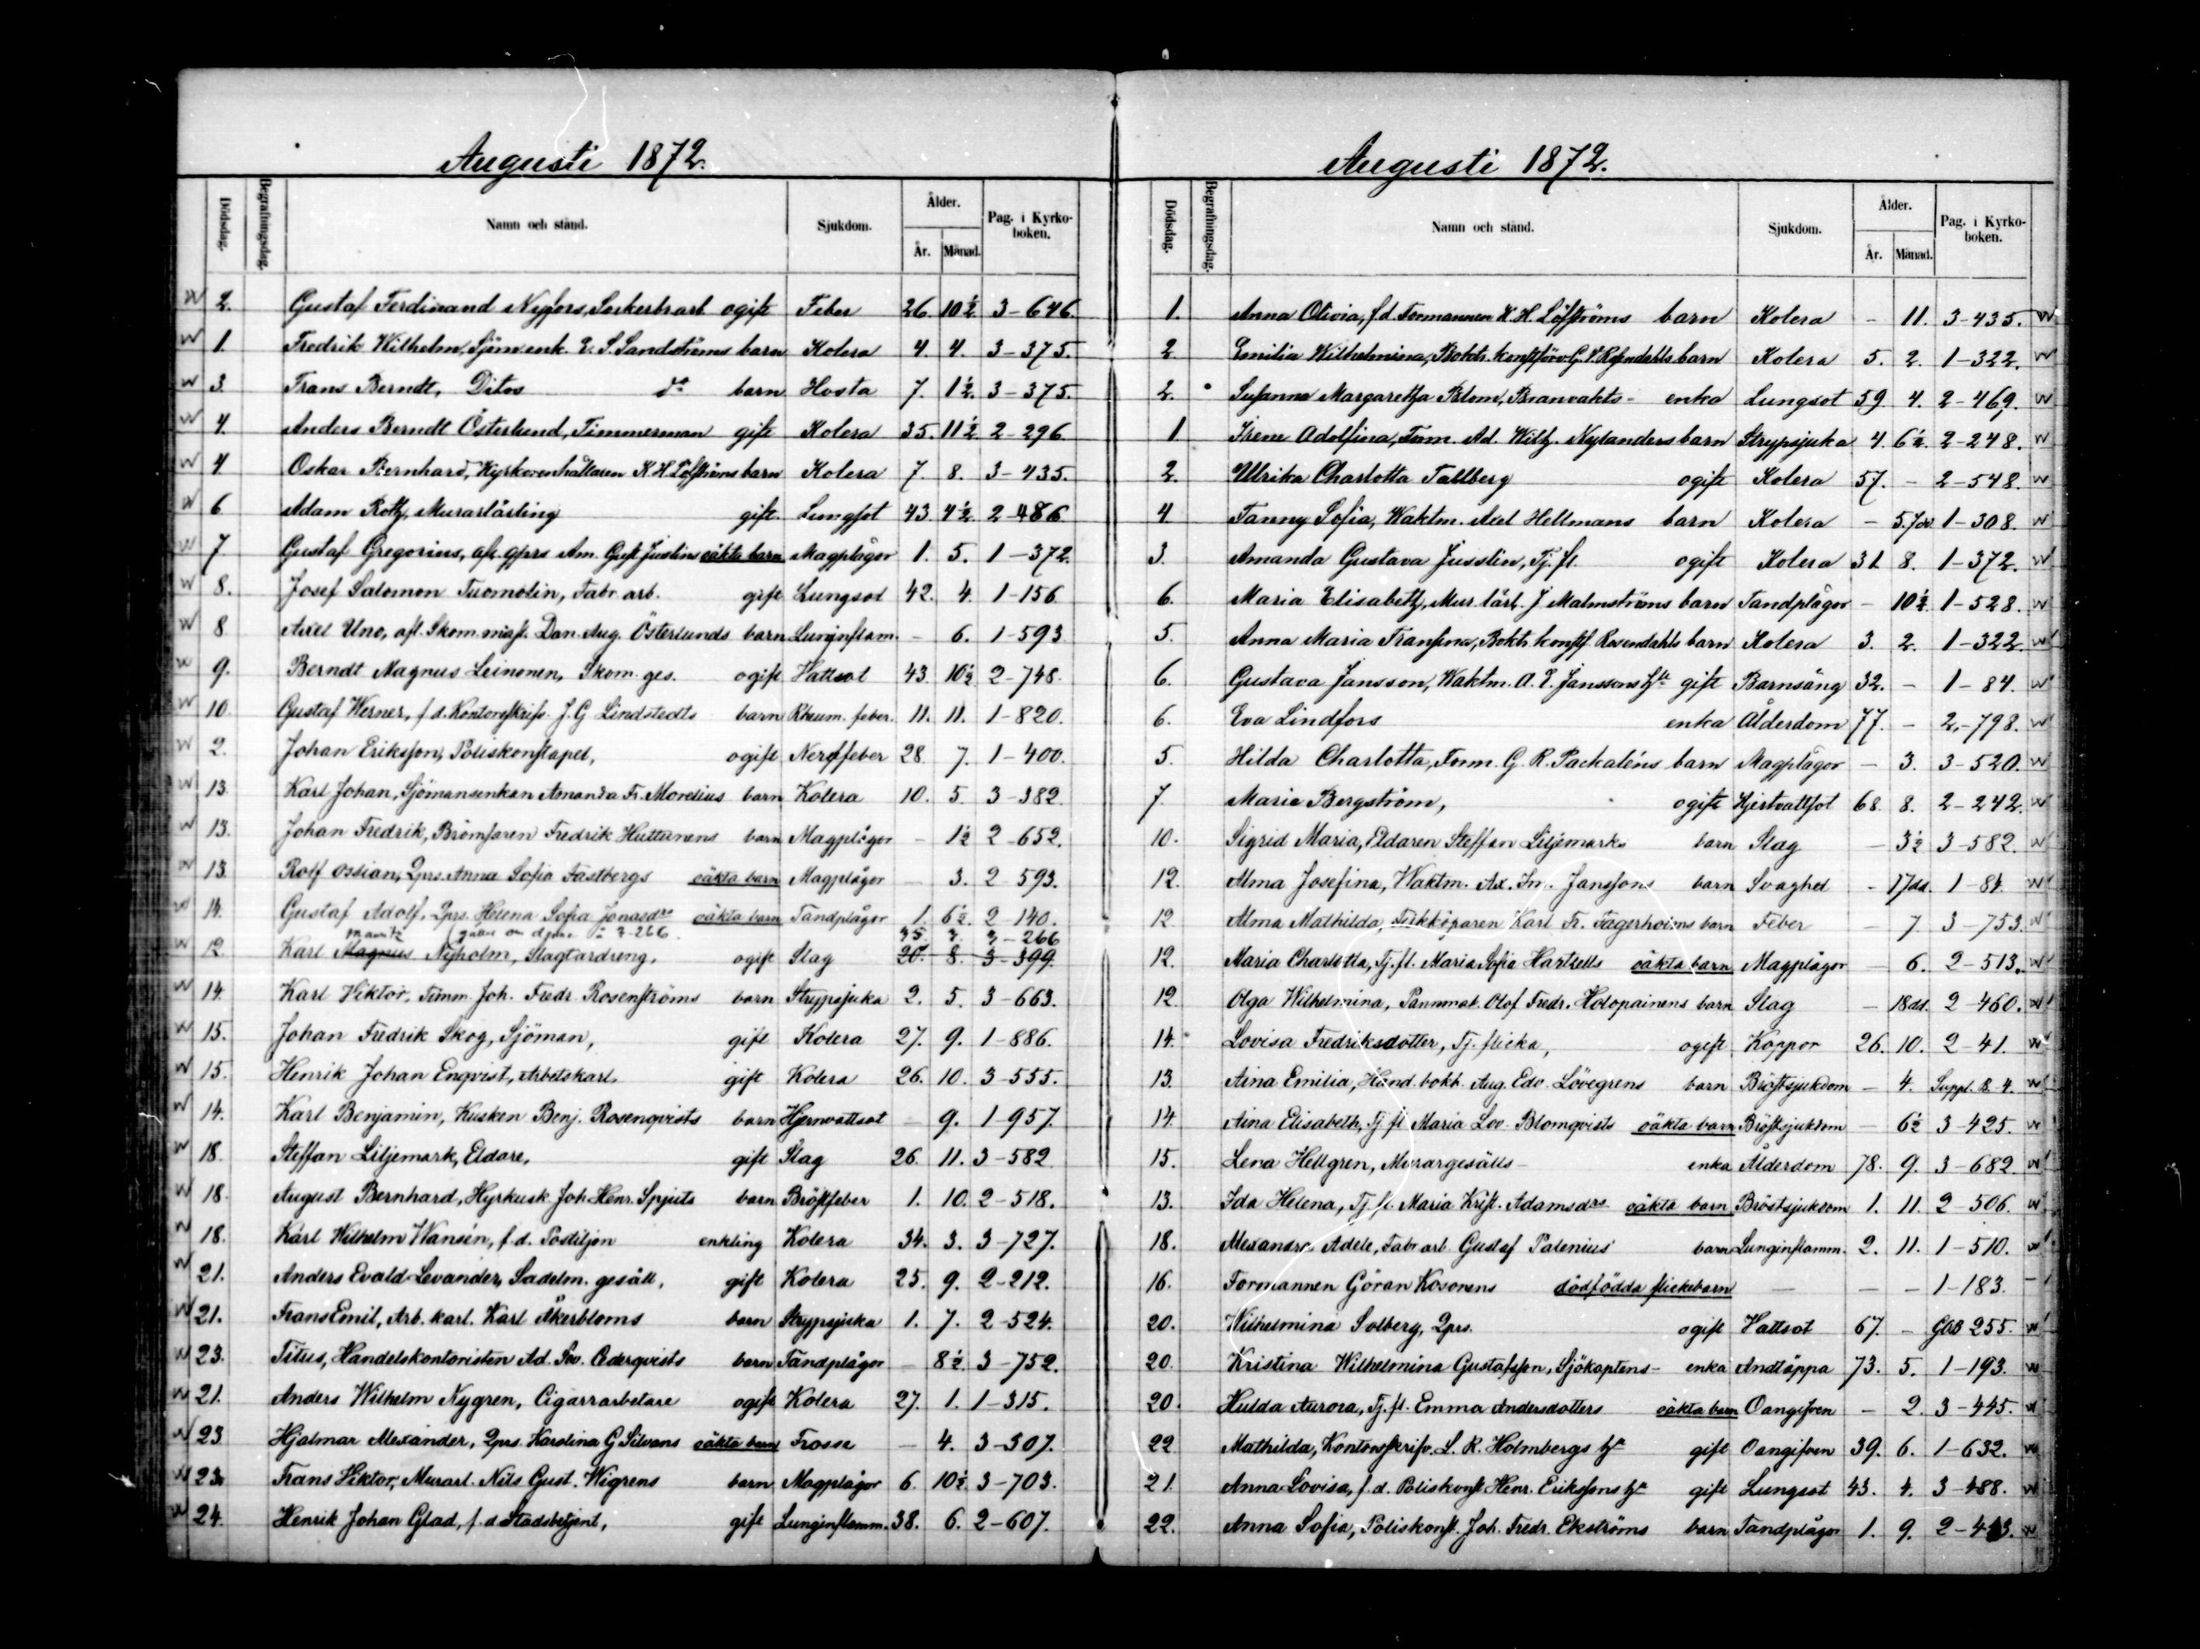 Augusti 1872.
Dödsdag. Begrafningsdag. Namn och stånd. Sjukdom. Ålder. År. Månad. Pag. i Kyrko-boken.
W 2. Gustaf Ferdinand Nyfors, Sockerbr.arb ogift Feber 26. 10 ½ 3-646.
W 1. Fredrik Wilhelm, Sjöm.enk. E. S. Sandströms barn Kolera 4. 4. 3-375.
W 3. Frans Berndt, Ditos do barn Hosta 7. 1 ½. 3-375.
W 4. Anders Berndt Österlund, Timmerman gift Kolera 35. 11 ½ 2-296
W 4 Oskar Bernhard, K H Löfströms barn Kolera 7. 8. 3-435.
W 6 Adam Roth, Murarlärling gift. Lungsot 43. 4 ½. 2-486
W 7 Gustaf Gregorius, afl. qprs Am. Gust. Juslins oäkta barn Magplågor 1. 5. 1-372.
W 8. Josef Salomon Tuomolin, Fabr. arb. gift Lungsot 42. 4. 1-156
W 8 Axel Uno, afl. Skom. mäst. Dan. Aug. Österlunds barn Lunginflam. - 6. 1-593
W 9. Berndt Magnus Leinonen, Skom. ges. ogift Hattsot 43 10 ½ 2-748.
W 10 Gustaf Werner, f d. Kontorsskrifv. J. G Lindstedts barn Rheum. feber. 11. 11. 1-820.
W 2. Johan Eriksson, Poliskonstapel, ogift Nervfeber 28. 7. 1-400.
W 13 Karl Johan, Sjömansenkan Amanda Fr. Morelius barn Kolera 10. 5. 3-382
W 13. Johan Fredrik, Fredrik Huttunens barn Magplågor - 1 ½ 2-652.
W 13 Rolf Ossian, Qprs. Anna Sofia Fastbergs oäkta barn Magplågor - 3. 2-593.
W 14. Gustaf Adolf, Qprs. Helena Sofia Jonasdrs oäkta barn Tandplågor 1. 6 ½. 2-140.
35. 3. 3-266
W 12 Karl Magnus Nyholm, Slagtardreng, ogift Slag 20. 8. 3-399.
W 14. Karl Viktor, Timm. Joh. Fredr. Rosenströms barn Strypsjuka 2. 5. 3-663.
W 15. Johan Fredrik Skog, Sjöman, gift Kolera 27. 9. 1-886.
W 15. Henrik Johan Enqvist, Arbetskarl, gift Kolera 26. 10. 3-555.
W 14. Karl Benjamin, Kusken Benj. Rosenqvists barn Hjernvattsot - 9. 1-957.
W 18. Steffan Liljemark, Eldare, gift Slag 26. 11. 3-582
W 18. August Bernhard, Hyrkusk Joh. Henr. Spjuts barn Bröstfeber 1. 10. 2-518.
W 18. Karl Wilhelm Wansén, f. d. Postiljon enkling Kolera 34. 3. 3-727.
W 21. Anders Evald Levander, Sadelm. gesäll, gift Kolera 25. 9. 2-212.
W 21. Frans Emil, Arb. karl. Karl Åkerbloms barn Strypsjuka 1. 7. 2-524.
W 23. Titus, Handelskontoristen Ad. Cederqvists barn Tandplågor - 8 ½. 3-752.
W 21. Anders Wilhelm Nygren, Cigarrarbetare ogift Kolera 27. 1. 1-315.
W 23 Hjalmar Alexander, Qprs. Karolina G. Silvans oäkta barn Trosse - 4. 3-307.
W 23 Frans Viktor, Murarl. Nils Gust. Wigrens barn Magplågor 6. 10 ½. 3-703.
W 24 Henrik Johan Glad, f. d Stadsbetjent, gift Lunginflamm. 38. 6. 2-607.
Augusti 1872.
Dödsdag. Begrafningsdag. Namn och stånd. Sjukdom. Ålder. År. Månad. Pag. i Kyrko-boken.
1. Anna Olivia, f d. Formannen K. H. Löfströms barn Kolera - 11. 3-435. W
2 Emilia Wilhelmina, Boktr. konstförv. barn Kolera 5. 2. 1-322. W
2. Susanna Margaretha Blom, Branvakts- enka Lungsot 59 4. 2-469. W
1 Irene Adolfina, Tim. Ad. Wilh. Nylanders barn Strypsjuka 4. 6 ½. 2-248. W
2. Ulrika Charlotta Tallberg ogift Kolera 57. - 2-548. W
4 Fanny Sofia, Waktm. Axel Hellmans barn Kolera - 5.7dr 1-308. W
3. Amanda Gustava Jusslin, Tj. fl. ogift Kolera 31 8. 1-372. W
6. Maria Elisabeth, Mur. lärl. J Malmströms barn Tandplågor - 10 ½. 1-528. W
5. Anna Maria Fransina, Boktr. konstf. Rosendahls barn Kolera 3. 2. 1-322. W
6. Gustava Jansson, Waktm. A. E. Janssons hu gift Barnsäng 32. - 1-84. W
6. Eva Lindfors enka Ålderdom 77. - 2-798. W
5. Hilda Charlotta, Form. G. R. Packaléns barn Magplågor - 3. 3-520. W
7. Maria Bergström, ogift Hjertvattsot 68. 8. 2-242. W
10. Sigrid Maria, Eldaren Steffan Liljemarks barn Slag - 3 ½ 3-582. W
12. Alma Josefina, Waktm. Ax. Im. Janssons barn Svaghet - 17dd. 1-84. W
12 Alma Mathilda, Karl Fr. Fagerholms barn Feber - 7. 3-753. W
12. Maria Charlotta, Tj. fl. Maria Sofia Hartzells oäkta barn Magplågor - 6. 2-513. W
12 Olga Wilhelmina, Pannmak. Olof Fredr. Holopainens barn Slag - 18dd. 2-460. W
14. Lovisa Fredriksdotter, Tj. flicka, ogift Koppor 26. 10. 2-41. W
13. Aina Emilia, Hand. bokh. Aug. Edv. Lövegrens barn Bröstsjukdom - 4. Suppl. B-4. W
14. Aina Elisabeth, Tj. fl Maria Lov. Blomqvists oäkta barn Bröstsjukdom - 6 ½ 3-425. W
15. Lena Hellgren, Murargesälls- enka Ålderdom 78. 9. 3-682 W
13. Ida Helena, Tj. fl. Maria Krist. Adamsdrs oäkta barn Bröstsjukdom 1. 11. 2-506. W
18. Alexandra Adele, Fabr arb. Gustaf Palenius barn Lunginflamm. 2. 11. 1-510. W
16. Formannen Göran Kosonens dödfödda flickebarn - - - 1-183. -
20. Wilhelmina Solberg, Qprs. ogift Hattsot 67. - GAB 255. W
20. Kristina Wilhelmina Gustafsson, Sjökaptens- enka Andtäppa 73. 5. 1-193. W
20. Hulda Aurora, Tj. fl. Emma Andersdotters oäkta barn Oangifven - 2. 3-445. W
22 Mathilda, Kontorsskrifv. L. R. Holmbergs hu gift Oangifven 39. 6. 1-632. W
21. Anna Lovisa, f. d. Poliskonst Henr. Erikssons hu gift Lungsot 43. 4. 3-488. W
22. Anna Sofia, Poliskonst. Joh. Fredr. Ekströms barn Tandplågor 1. 9. 2-443. W